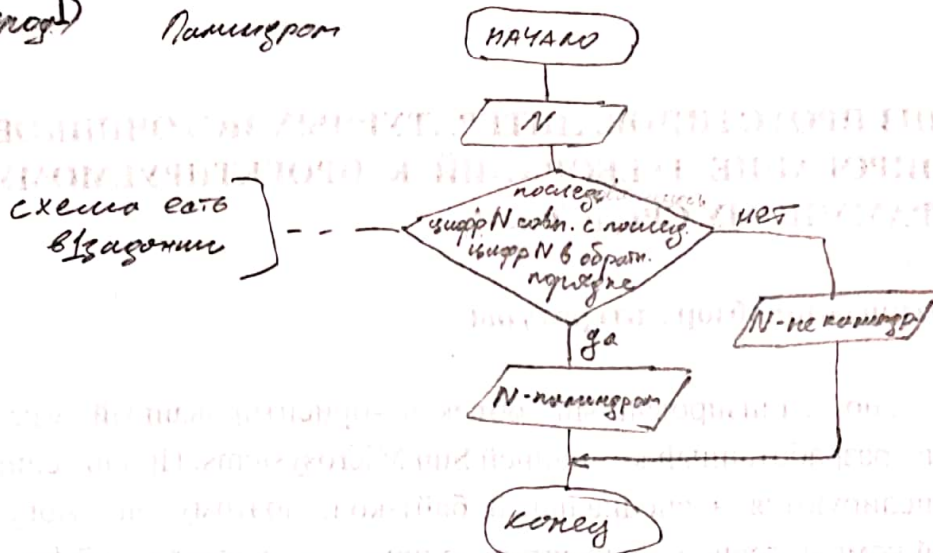 Палиндром
НАЧАЛО
N
схема есть
в 1 задании
последн.
цифр N совп. с послед.
цифр N в обратн.
порядке
нет
N-не палиндр
да
N-палиндром
конец